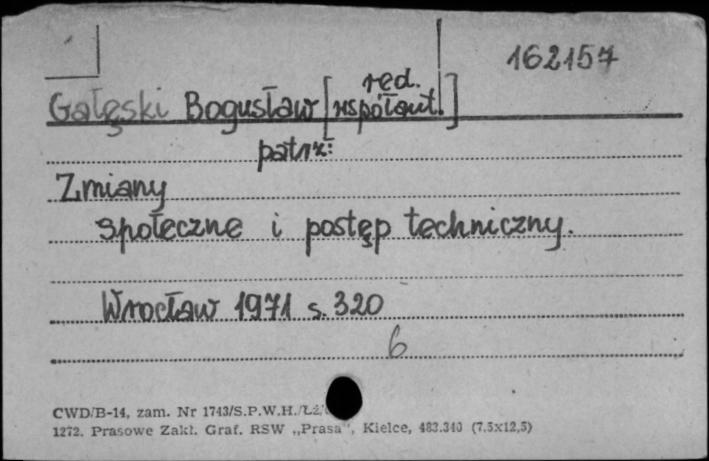 162157
red.
Gałęski Bogusław [współaut.]
patrz:
Zmiany
społeczne i postęp techniczny.
Wrocław 1971 s. 320
6
CWD/B-14, zam. Nr 1743/S.P.W.H./Łź/
1272. Prasowe Zakł. Graf. RSW „Prasa”, Kielce, 483.340 (7,5x12,5)